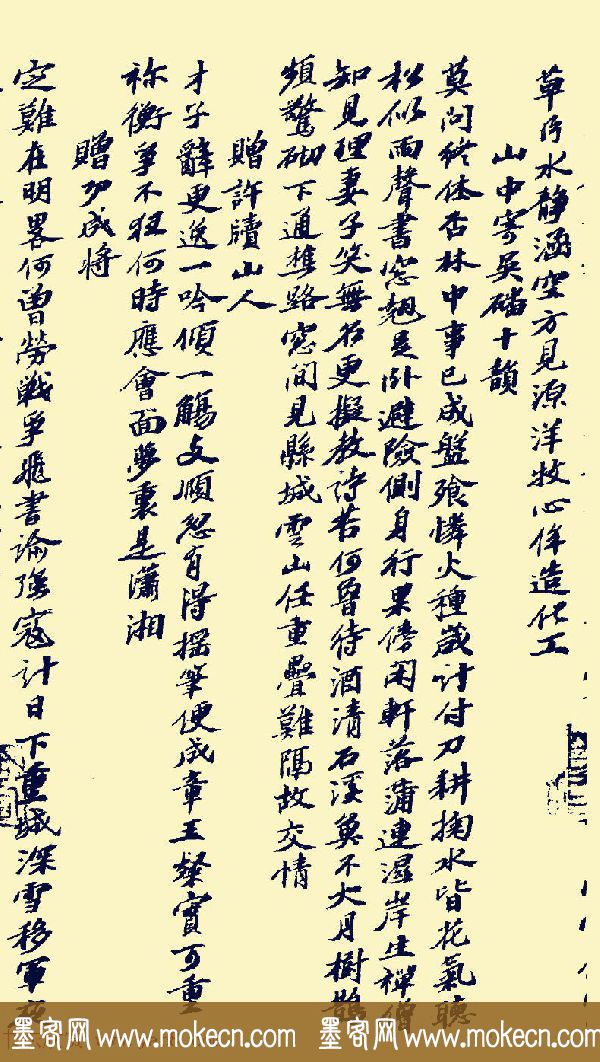 草水静涵空方見源洋牧心侔造化工
山中寄吳磻十韻
莫問終休否林中事已成盤飱憐火種歲計付刀耕掬水皆花氣聽
松似雨聲書窓翹足臥避險側身行果傍閑軒落蒲連濕岸生禪僧
知見理妻子笑無名更擬教詩苦何曾待酒清石溪魚不大月樹鵲
頻驚砌下通樵路窓間見縣城雲山任重疊難隔故交情
贈許牘山人
才子辭更逸一吟傾一觴支頤忽有得搖筆便成章王粲實可重
祢衡爭不狂何時應會面夢裏是瀟湘
贈功成將
定難在明畧何曾勞戰爭飛書諭強寇計日下重城深雪移軍夜
墨客网 www.mokecn.com 墨客网 www.mokecn.com